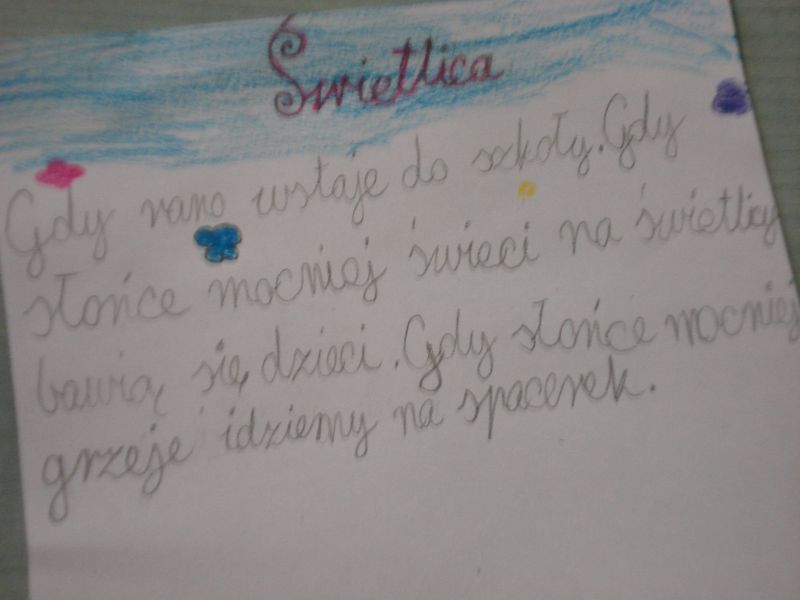 Świetlica
Gdy rano wstaje do szkoły. Gdy
słońce mocniej świeci na świetlicy
bawią się dzieci. Gdy słońce mocniej
grzeje idziemy na spacerek.